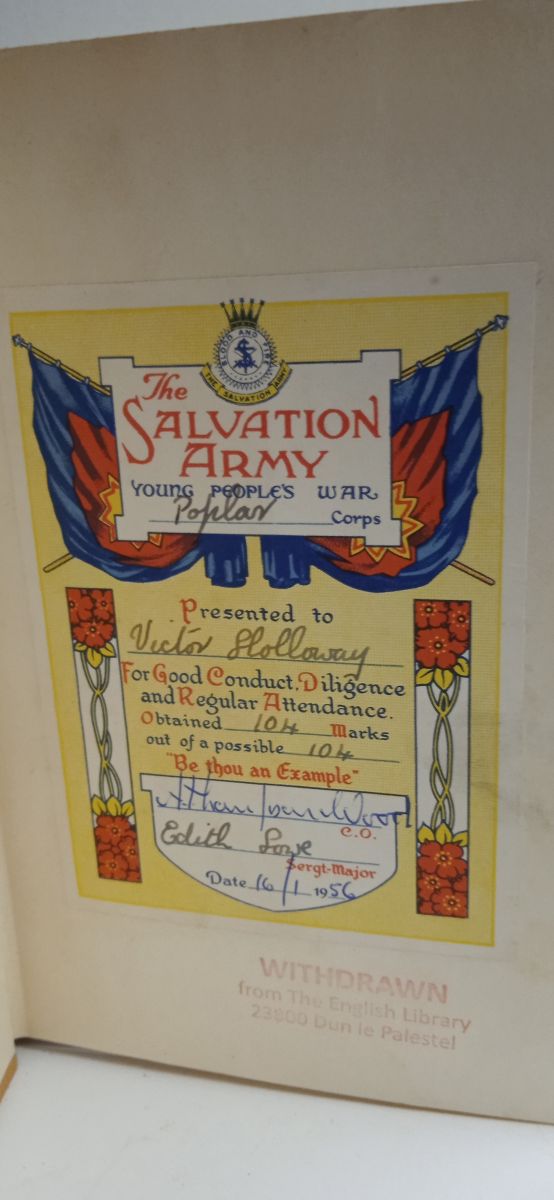 BLOOD AND FIRE
THE SALVATION ARMY
The
SALVATION
ARMY
YOUNG PEOPLE'S WAR
Poplar Corps
Presented to
Victor Holloway
For Good Conduct, Diligence
and Regular Attendance.
Obtained 104 Marks
out of a possible 104
"Be thou an Example"
Wood
C.O.
Edith Lowe
Sergt-Major
Date 16/1 1956
WITHDRAWN
from The English Library
23800 Dun le Palestel